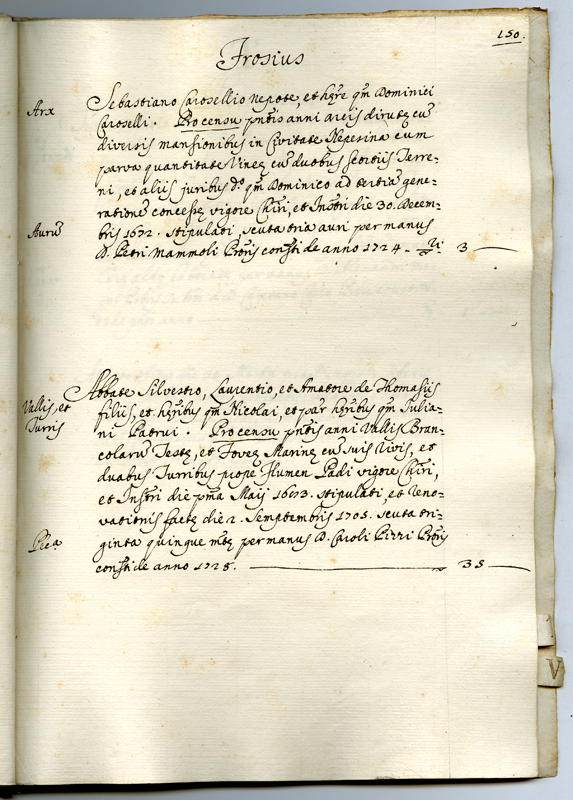 150.
Frosius
Arx
Sebastiano Carosellio Nepote, et hęre qm Dominici
Caroselli. Pro censu pntis anni arcis dirutę cũ
diversis mansionibus in Civitate Nepesina cum
parva quantitate Vineę cũ duobus scortiis Terre-
ni, et aliis juribus do qm Dominico ad tertiã gene-
rationẽ concessę vigore Chiri, et Instri die 30. Decem-
Aurũ
bris 1672. stipulati, scuta tria auri per manus
D. Petri Mammoli Proris consti de anno 1724. 3
Abbate Silvestro, Laurentio, et Amatore de Thomasiis
Vallis, et
Turris
filiis, et hęribus qm Nicolai, et par hęribus qm Iulia-
ni Patrui. Pro censu pntis anni Vallis Bran-
colarũ Testę, et Foveę Marinę cũ suis Rivis, et
duabus Turribus prope Flumen Padi vigore Chiri,
et Instri die pma Maij 1603. stipulati, et reno-
vationis factę die 2. Semptembris 1705. scuta tri-
ginta quinque mtę per manus D. Caroli Pizzi Proris
consti de anno 1725. 35
V